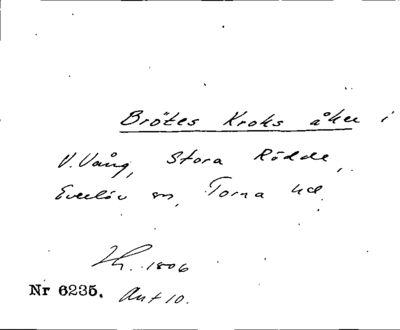 Brötes Kroks åker i
V. Vång, Stora Rödde,
Everlöv sn, Torna hd.
1806
Nr 6235. Akt 10.